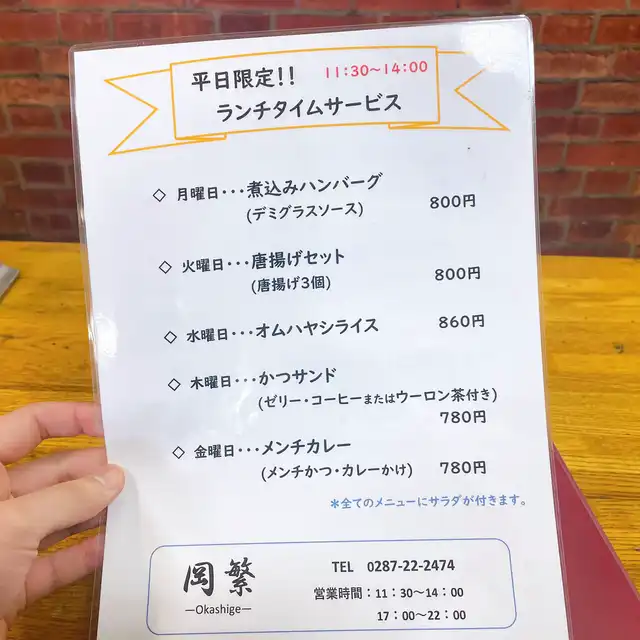 平日限定!! 11:30~14:00
ランチタイムサービス
◇ 月曜日・・・煮込みハンバーグ
(デミグラスソース) 800円
◇ 火曜日・・・唐揚げセット
(唐揚げ3個) 800円
◇ 水曜日・・・オムハヤシライス 860円
◇ 木曜日・・・かつサンド
(ゼリー・コーヒーまたはウーロン茶付き)
780円
◇ 金曜日・・・メンチカレー
(メンチかつ・カレーかけ) 780円
＊全てのメニューにサラダが付きます。
岡繁
―Okashige―
TEL 0287-22-2474
営業時間：11：30～14：00
17：00～22：00